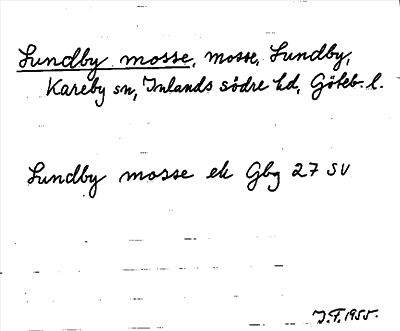 Lundby mosse, mosse, Lundby,
Kareby sn, Inlands södre hd, Göteb. l.
Lundby mosse ek Gbg 27 SV
J.F. 1955.